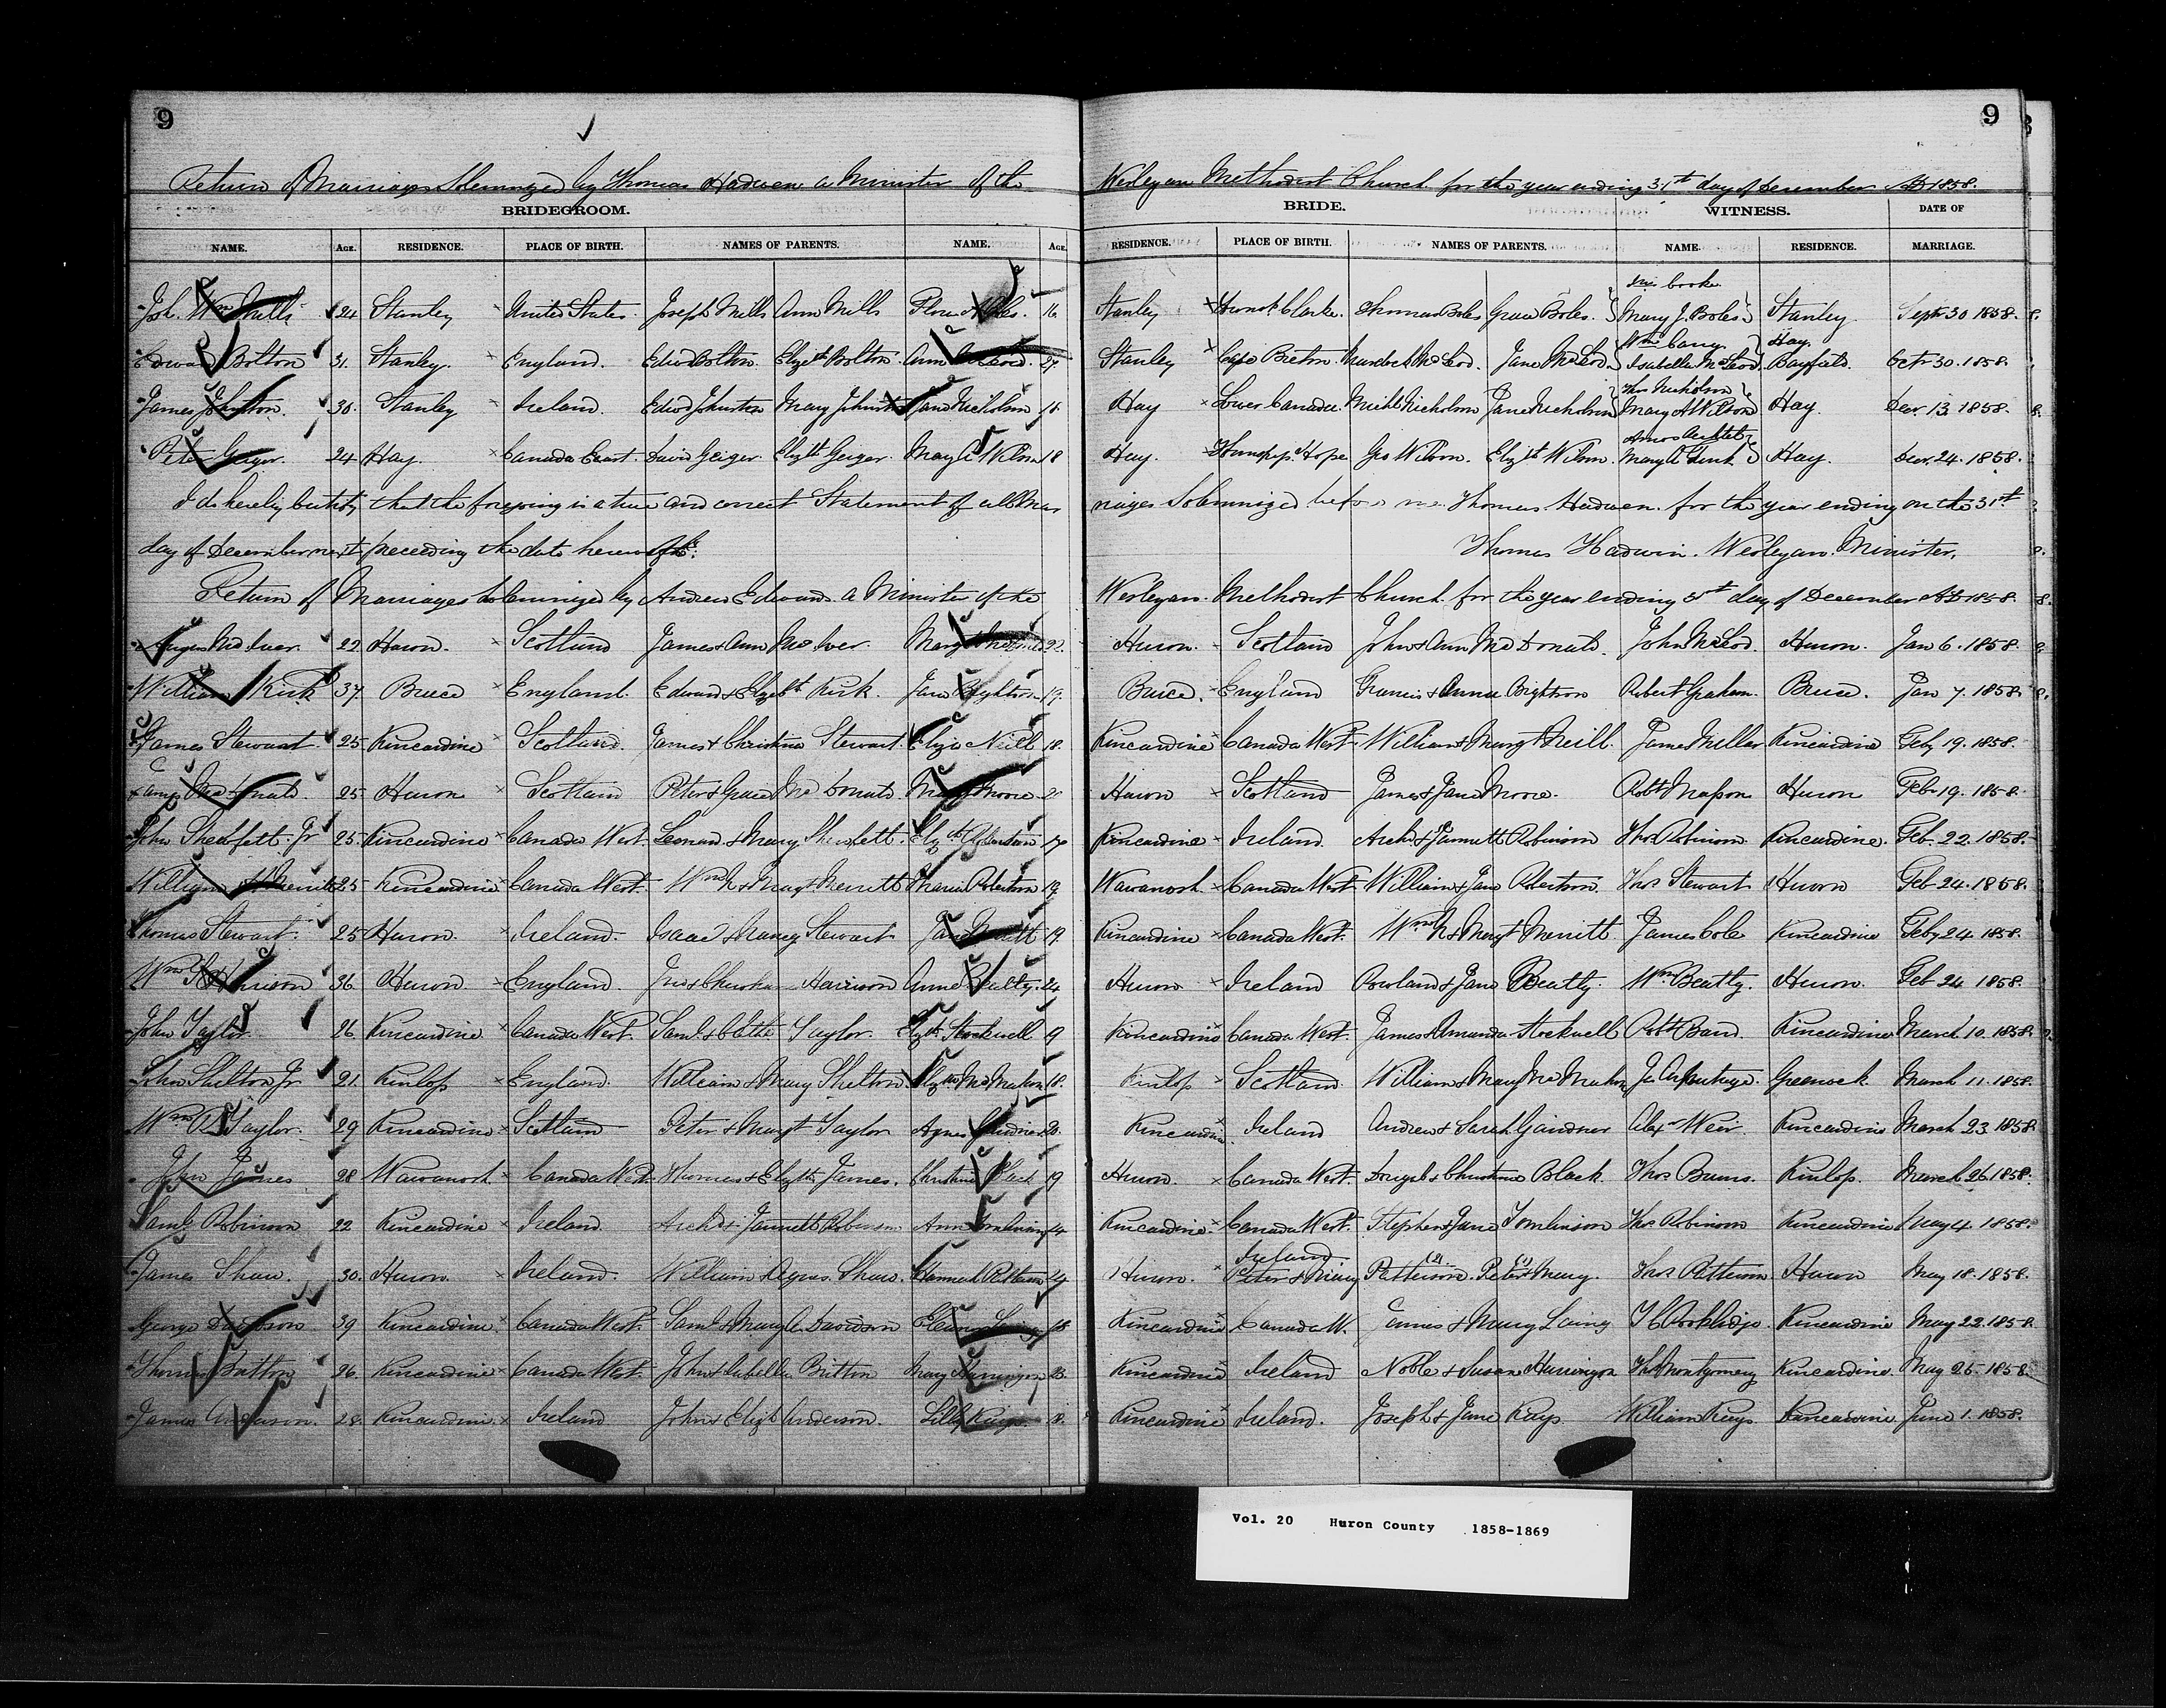 9 9
Return of Marriages Solemnized by Thomas Hadwen a Minister of the Wesleyan Methodist Church for the year ending 31st day of December AD 1858.
BRIDEGROOM. BRIDE. WITNESS. DATE OF
NAME. AGE. RESIDENCE. PLACE OF BIRTH. NAMES OF PARENTS. NAME. AGE. RESIDENCE. PLACE OF BIRTH. NAMES OF PARENTS. NAME. RESIDENCE. MARRIAGE.
Jos. Wm Mills 24 Stanley United States Joseph Mills Ann Mills 16 Stanley Thomas Boles Grace Boles. Mary J. Boles Stanley Sept 30 1858.
Edward Bolton 31. Stanley. England. Edwd Bolton. Elizth Bolton Ann McLeod. 27. Stanley Cape Breton Murdoch McLeod. Jane McLeod. Isabella McLeod Hay. Bayfield. Octr 30. 1858.
James Johnston. 30. Stanley Ireland. Edwd Johnston Mary Johnston Jane Nicholson 18 Hay Lower Canada Michl Nicholson Jane Nicholson Thos Nicholson Mary A Wilson Hay. Decr 13 1858.
Peter Geiger. 24 Hay. Canada East. David Geiger Elizth Geiger. Mary A Wilson 18 Hay. Geo Wilson. Elizth Wilson. Hay. Decr. 24. 1858.
I do hereby certify that the foregoing is a true and correct Statement of all Marriages Solemnized before me Thomas Hadwen for the year ending on the 31st
day of December next preceding the date hereof. Thomas Hadwin. Wesleyan Minister.
Return of Marriages Solemnized by Andrew Edwards a Minister of the Wesleyan Methodist Church for the year ending 31st day of December AD 1858.
Angus McIver 22 Huron. Scotland James & Ann McIver. Mary McDonald 22. Huron. Scotland John & Ann McDonald. John McLeod. Huron. Jan 6. 1858.
William Kirk 37 Bruce England. Edward & Elizbth Kirk. Jane Brightson 19. Bruce. England Francis & Anna Brightson Robert Graham. Bruce. Jan 7. 1858.
James Stewart 25 Kincardine Scotland. James & Christina Stewart Eliza Neill 18. Kincardine Canada West William & Margt Neill. James Millar Kincardine Feby 19. 1858.
James McDonald. 25 Huron Scotland Peter & Grace McDonald. Mary Moore Huron Scotland James & Jane Moore. Robt Masson Huron Feb. 19. 1858.
John Shewfelt Jr 25. Kincardine Canada West. Leonard & Mary Shewfelt. Elizth Robinson 17 Kincardine Ireland. Archd & Jannett Robinson Thos Robinson Kincardine. Feb. 22. 1858.
William Merritt 25 Kincardine Canada West. Wm N & Margt Merritt Maria Robertson 19 Wawanosh Canada West William & Jane Robertson. Thos Stewart Huron Feb 24. 1858.
Thomas Stewart. 25 Huron. Ireland. Isaac & Nancy Stewart Jane Merritt 19. Kincardine Canada West. Wm N & Margt Merritt James Cole Kincardine Feby 24 1858.
Wm Harrison 36 Huron England. Harrison Anne Beatty. 24 Huron Ireland Rowland & Jane Beatty. Wm Beatty. Huron. Feb 24 1858.
John Taylor 26 Kincardine Canada West. Saml & Taylor. Elizth Stockwell 19 Kincardine Canada West. James & Amanda Stockwell Robt Kincardine March 10. 1858.
John Shelton Jr 21. Kinloss England. William & Mary Shelton. Elizth McMahon 18. Kinloss Scotland. William & Mary McMahon Greenock March 11. 1858.
Wm R Taylor. 29 Kincardine Scotland Peter & Margt Taylor Agnes Gardner 20. Kincardine. Ireland Andrew & Sarah Gardner Alex Weir. Kincardine March 23 1858
John James 28 Wawanosh Canada West Thomas & Elizth James. Christina Black 19 Huron. Canada West. Dougald & Christina Black. Thos Burns. Kinloss. March 26 1858.
Saml Robinson 22 Kincardine Ireland. Archd & Jannett Robinson Ann Tomlinson 24 Kincardine. Canada West. Stephen & Jane Tomlinson Thos Robinson Kincardine May 4. 1858.
James Shaw. 30. Huron. Ireland. William & Agnes Shaw. Hannah Patterson 24 Huron. Ireland Peter & Mary Patterson (2) Peter (1) & Mary. Thos Patterson Huron May 18. 1858.
George Davidson 39 Kincardine Canada West. Saml & Mary A. Davidson Laing 18 Kincardine Canada W. James & Mary Laing Kincardine May 22. 1858.
Thomas Britton 26. Kincardine Canada West. John & Isabella Britton Mary Harrington 23. Kincardine Ireland Noble & Susan Harrington Thos Montgomery Kincardine. May 25. 1858.
James Anderson. 28. Kincardine Ireland John & Elizb Anderson. Lilly Kays. 18. Kincardine Ireland. Joseph & Jane Kays William Kays Kincardine June 1. 1858.
Vol. 20 Huron County 1858-1869